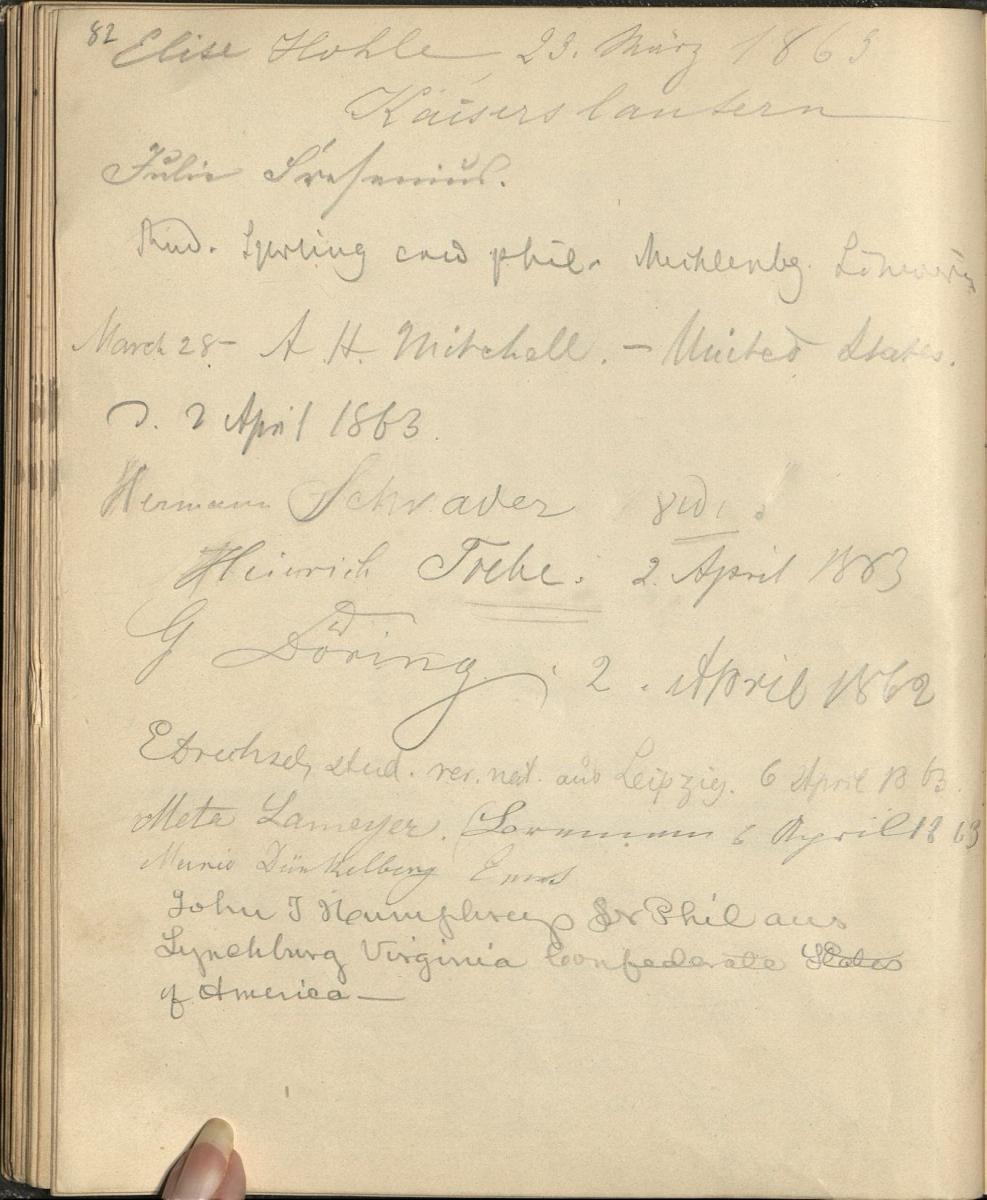 82
Elise Hohle, 23. März 1863
Kaiserslautern
Julie Fresenius.
Rud. Sperling cand phil. Mecklenbg.
March 28 – A H Mitchell. – United States.
d. 2 April 1863.
Hermann Schrader vid.
Heinrich Trebe. 2. April 1863
G Döring. 2. April 1862
E Drechsel, stud. rer. nat. aus Leipzig. 6 April 1863.
Meta Lameyer. 6 April 1863
Marie Dünkelberg Ems
John T Humphreys Dr Phil aus
Lynchburg Virginia Confederate States
of America —